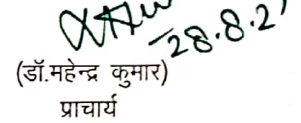 28.8.2
(डॉ.महेन्द्र कुमार)
प्राचार्य